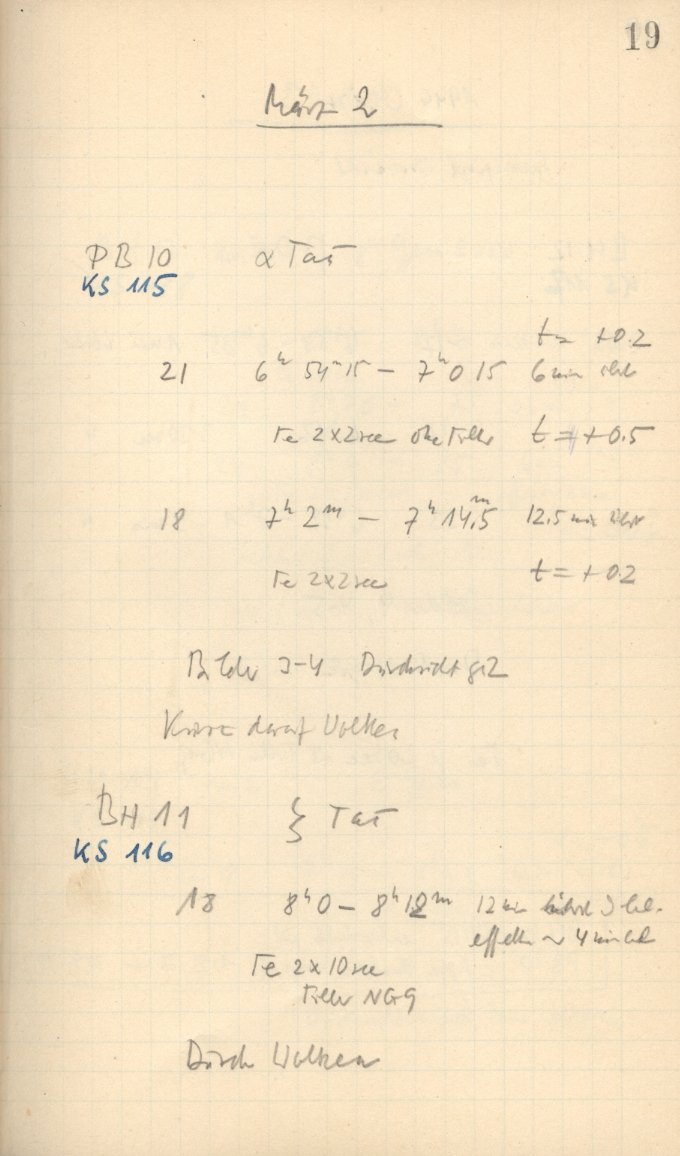 19
März 2
PB 10 α Tau
KS 115
t = +0.2
21 6ʰ 54ᵐ 15 – 7ʰ 0 15 6 min
Fe 2x2sec ohne Filter t = +0.5
18 7ʰ 2ᵐ – 7ʰ 14.5ᵐ 12.5 min
Fe 2x2sec t = +0.2
Bilder 3-4 Durchsicht gs2
Kurz darauf Wolken
BH 11 ζ Tau
KS 116
18 8ʰ 0 – 8ʰ 12ᵐ 12 min
~ 4 min
Fe 2x10sec
Filter NG9
Durch Wolken